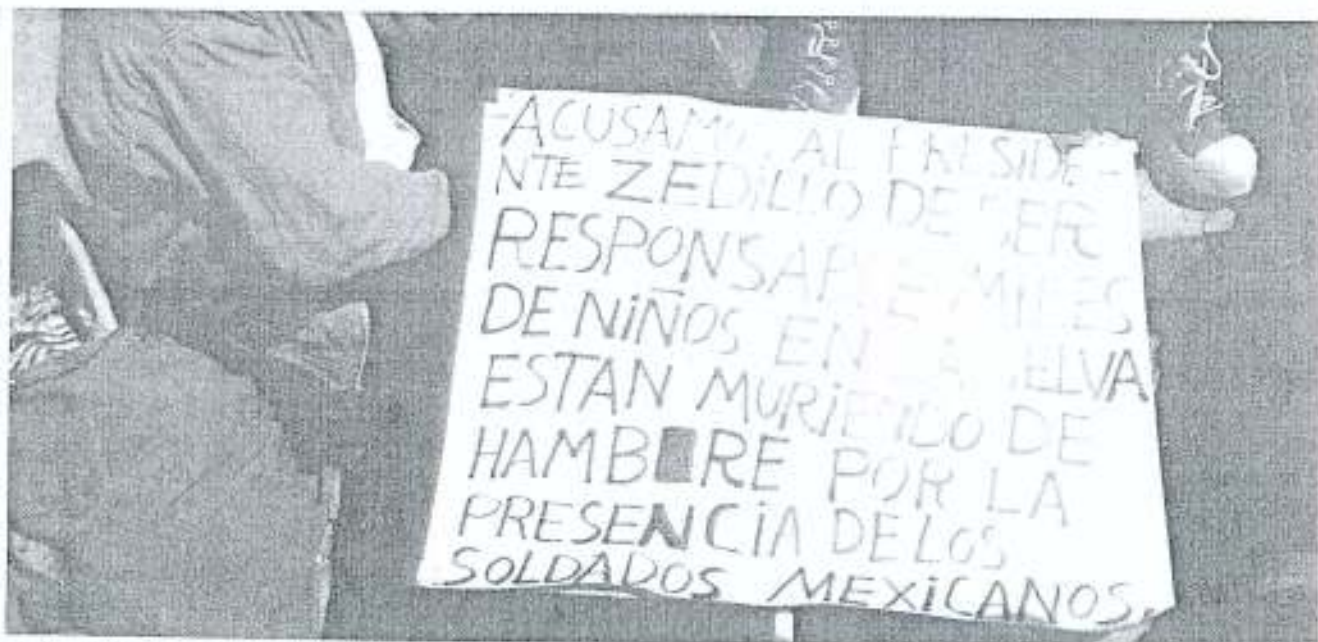 ACUSAMOS AL PRESIDE-
NTE ZEDILLO DE SER
RESPONSABLE MILES
DE NIÑOS EN LA SELVA
ESTAN MURIENDO DE
HAMBRE POR LA
PRESENCIA DE LOS
SOLDADOS MEXICANOS.